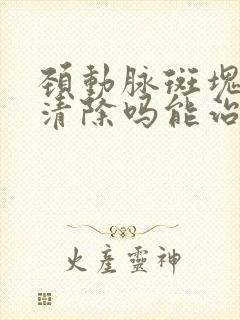 頚動脉斑塊
清除吗能治
火産靈神